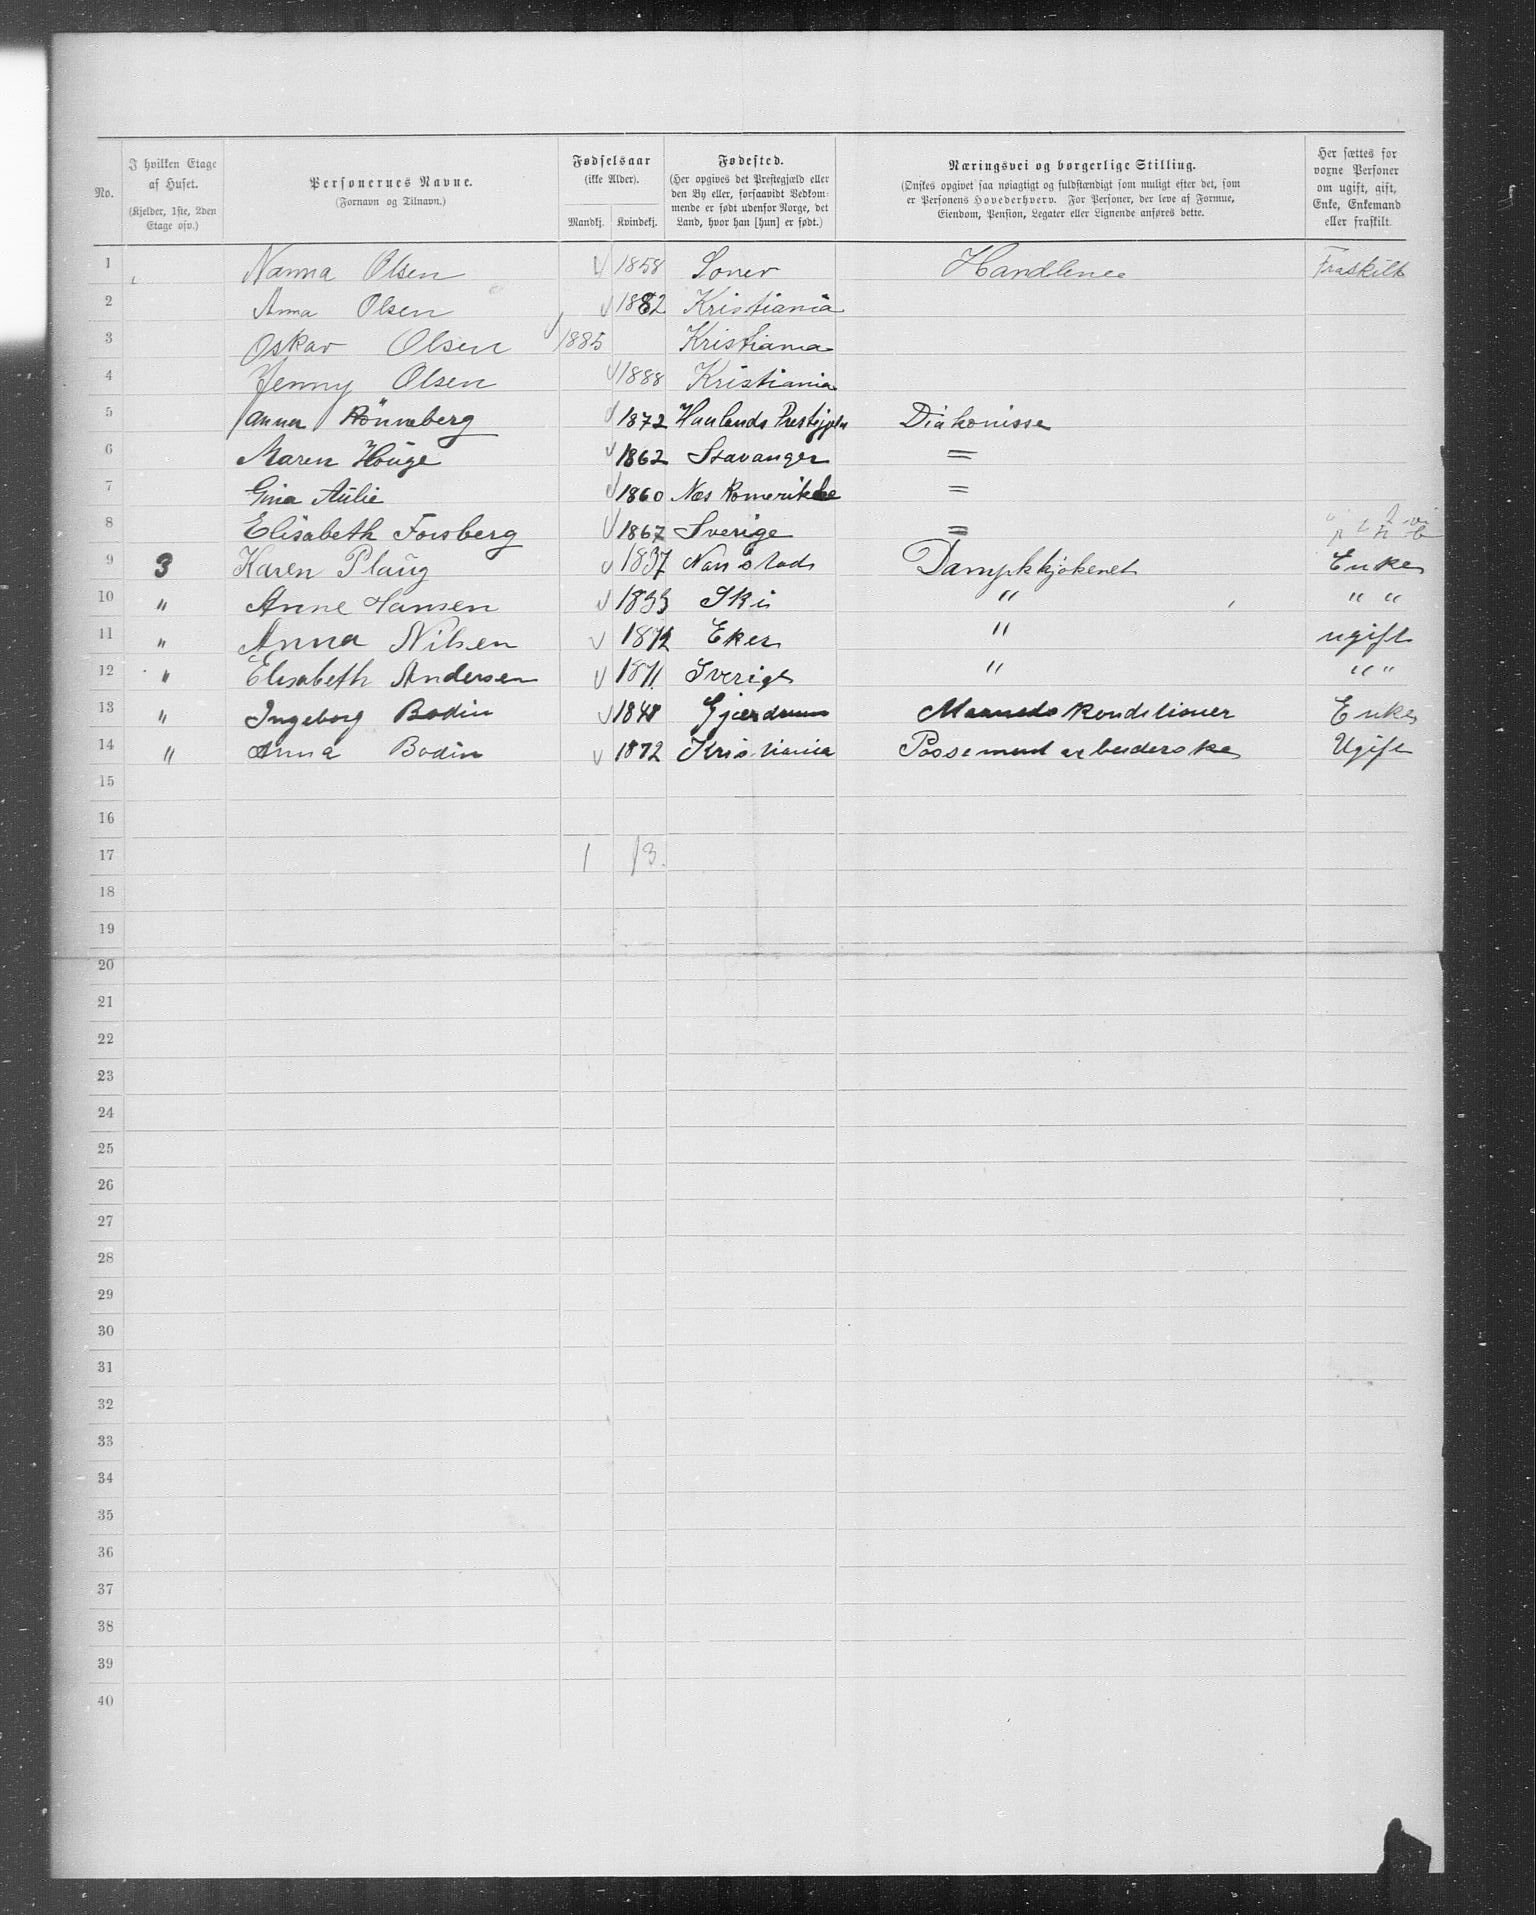 No. | I hvilken Etage af Huset. (Kjelder, 1ste, 2den Etage osv.) | Personernes Navne. (Fornavn og Tilnavn.) | Fødselsaar (ikke Alder). Mandkj. | Kvindekj. | Fødested. (Her opgives det Prestegjæld eller den By eller, forsaavidt Vedkommende er født udenfor Norge, det Land, hvor han [hun] er født.) | Næringsvei og borgerlige Stilling. (Ønskes opgivet saa nøiagtigt og fuldstændigt som muligt efter det, som er Personens Hovederhverv. For Personer, der leve af Formue, Eiendom, Pension, Legater eller Lignende anføres dette.) | Her sættes for voxne Personer om ugift, gift, Enke, Enkemand eller fraskilt.
1 Nanna Olsen 1858 Soner Handlende Fraskilt
2 Anna Olsen 1882 Kristiania
3 Oskar Olsen 1885 Kristiania
4 Jenny Olsen 1888 Kristiania
5 Anna Rönneberg 1872 Haalands Prestgjæld Diakonisse
6 Maren Houge 1862 Stavanger =
7 Gina Aulie 1860 Næs Romerikke =
8 Elisabeth Forsberg 1867 Sverige =
9 3 Karen Plaug 1837 Nanstad Dampkkjøkenet Enke
10 " Anne Hansen 1833 Ski " " "
11 " Anna Nilsen 1872 Eker " ugift
12 " Elisabeth Andersen 1871 Sverige " " "
13 " Ingeborg Bodin 1848 Gjerdrum Maaneds konditioner Enke
14 " Anna Bodin 1872 Kristiania Possement arbeiderske Ugift
15
16
17 1 13.
18
19
20
21
22
23
24
25
26
27
28
29
30
31
32
33
34
35
36
37
38
39
40